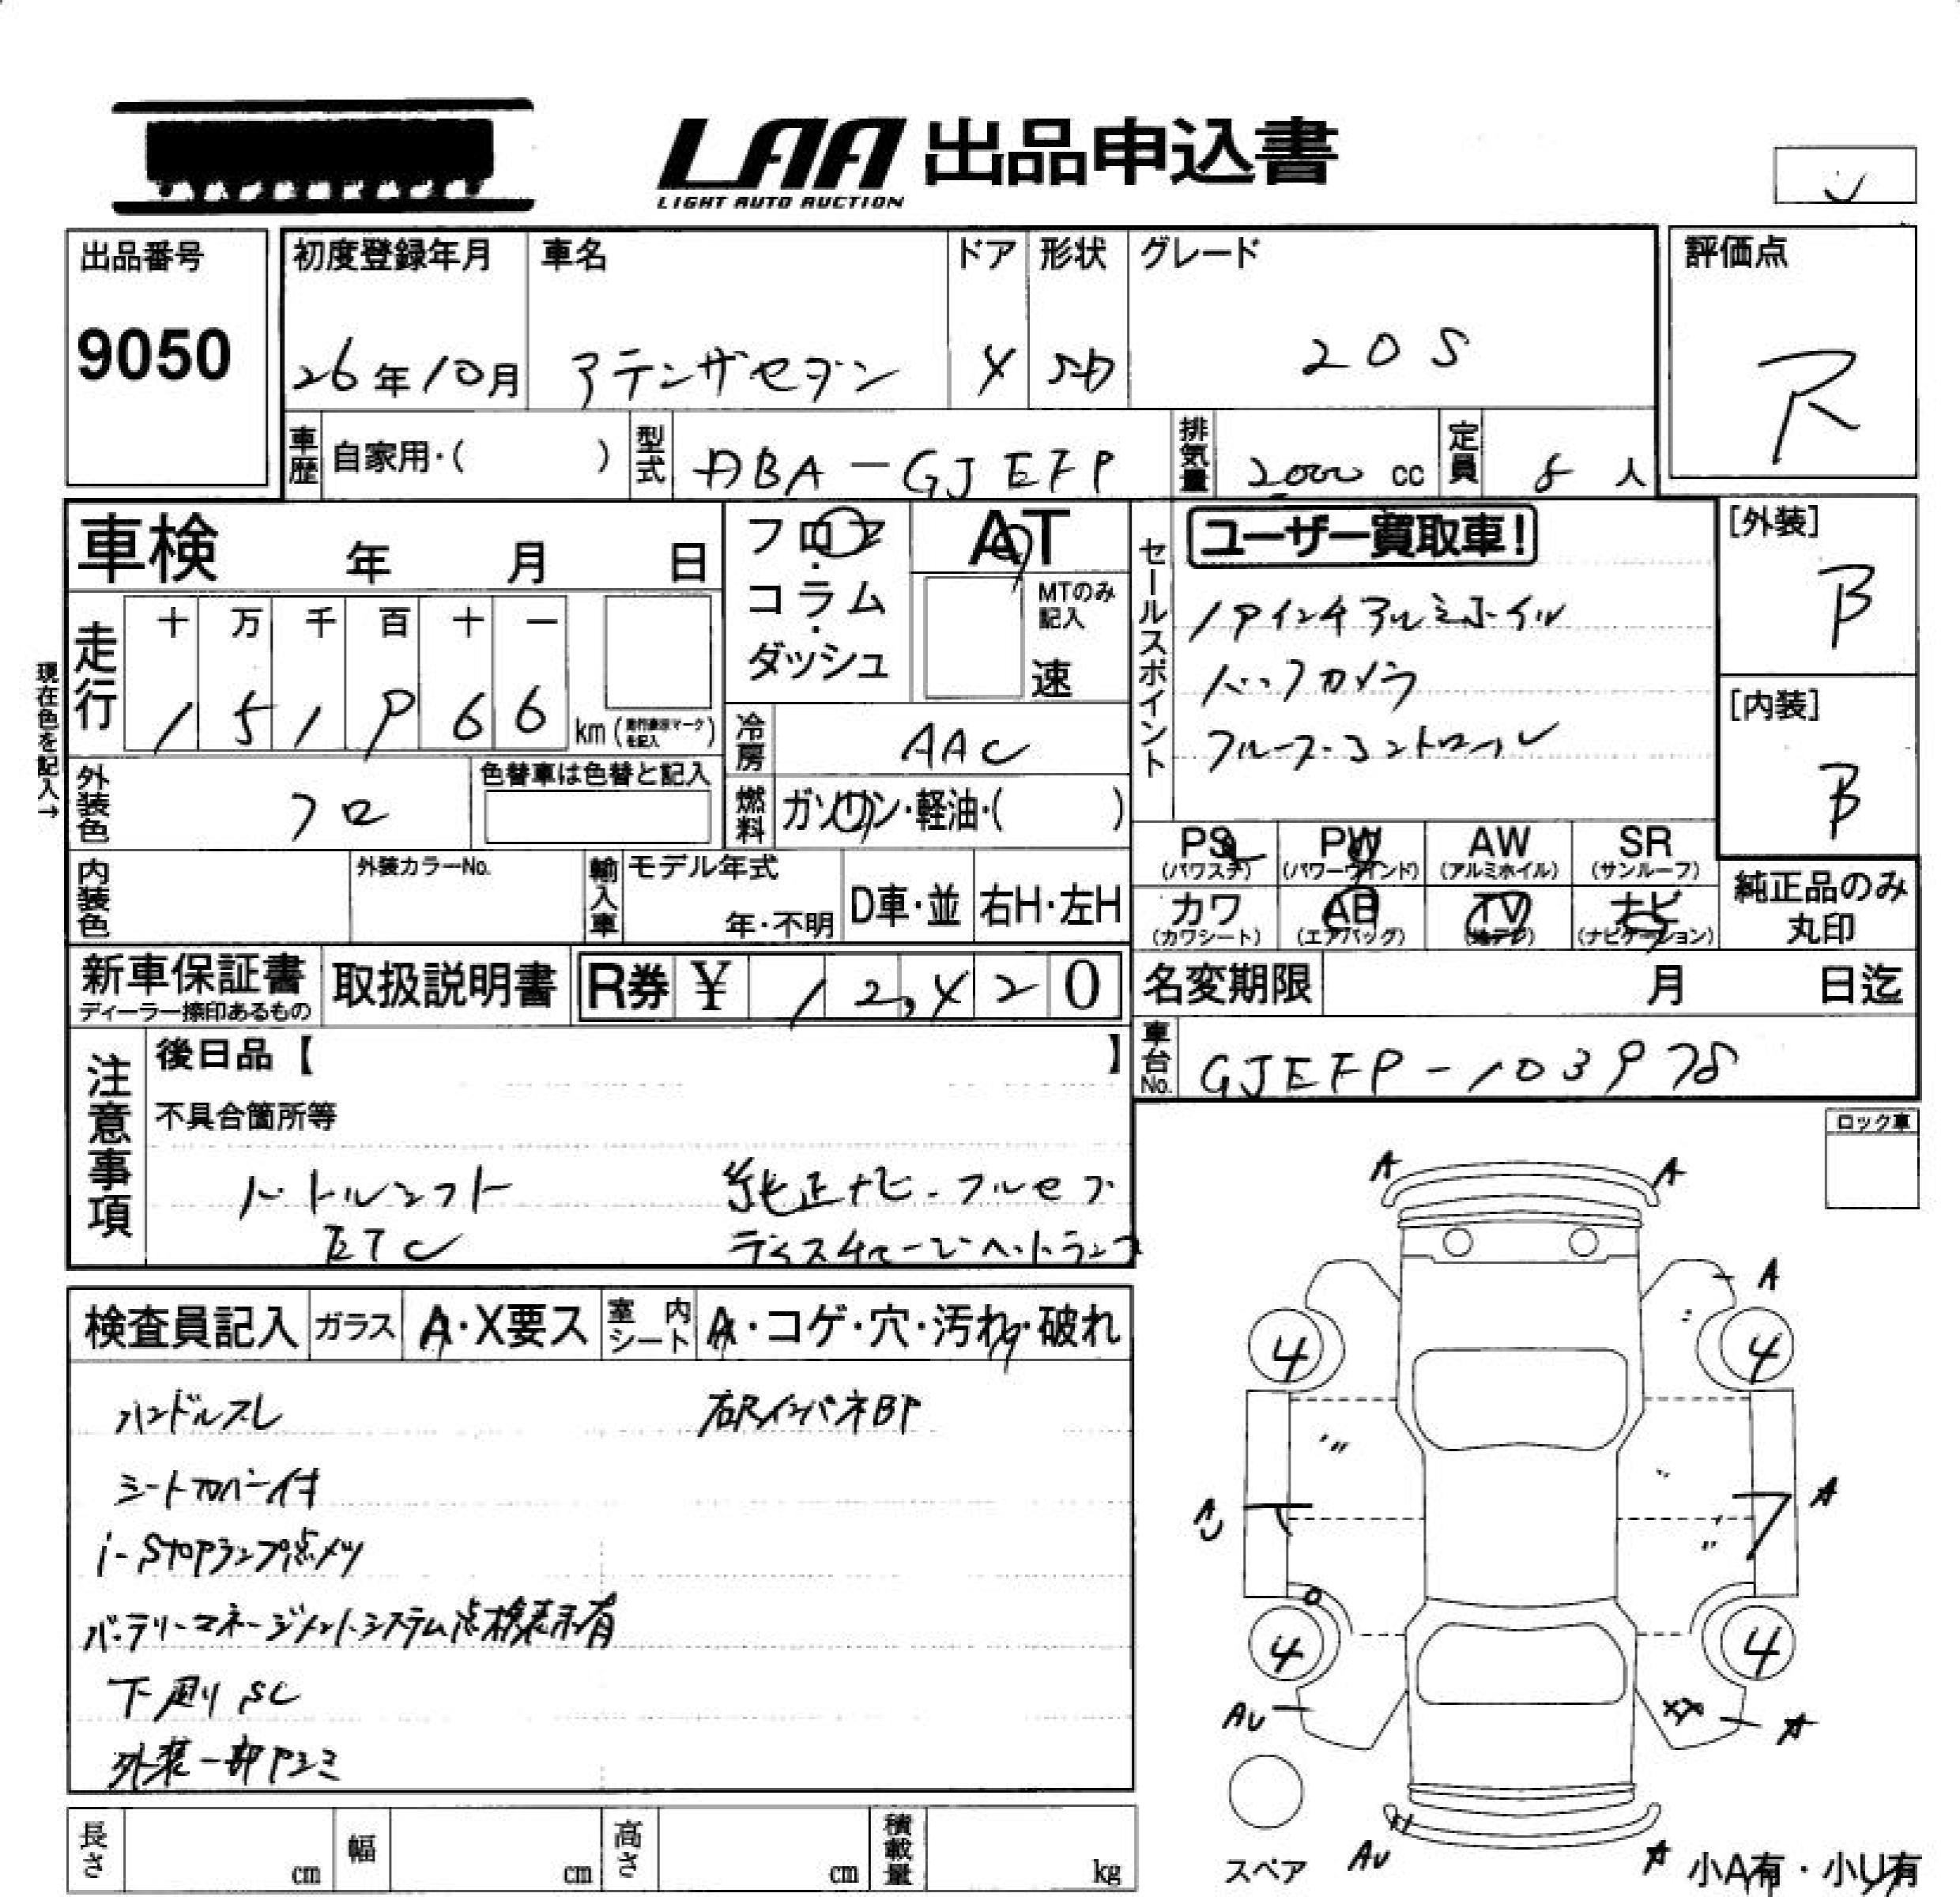 LAA 出品申込書
LIGHT AUTO AUCTION
出品番号 初度登録年月 車名 ドア 形状 グレード 評価点
9050 26年10月 アテンザセダン 4 SD 20S R
車歴 自家用・( ) 型式 DBA-GJEFP 排気量 2,000 cc 定員 5 人
車検 年 月 日 フロア・コラム・ダッシュ AT MTのみ記入 速
セールスポイント ユーザー買取車! [外装] B
19インチアルミホイル
バックカメラ
クルーズコントロール
[内装] B
走行 十 万 千 百 十 一
151966 km (走行表示マークを記入)
現在色を記入→
冷房 AAC
外装色 クロ 色替車は色替と記入 燃料 ガソリン・軽油・( )
PS (パワステ) PW (パワーウインド) AW (アルミホイル) SR (サンルーフ)
カワ (カワシート) AB (エアバッグ) TV (地デジ) ナビ (ナビゲーション) 純正品のみ丸印
内装色 外装カラーNo. 輸入車 モデル年式 年・不明 D車・並 右H・左H
新車保証書 ディーラー捺印あるもの 取扱説明書 R券 ¥ 12,420 名変期限 月 日迄
注意事項 後日品【 】 車台No. GJEFP-103978
不具合箇所等 ロック車
パドルシフト 純正ナビ フルセグ
ETC ディスチャージヘッドランプ
検査員記入 ガラス A・X要ス 室内シート A・コゲ・穴・汚れ・破れ
ハンドルスレ 右RインパネBP
シートカバー付
i-STOPランプ点メツ
バッテリーマネージメントシステム点検表示有
下廻りSC
外装一部アユミ
A A
A
4 4
A
4 4
AU A
スペア AU A 小A有・小U有
長さ cm 幅 cm 高さ cm 積載量 kg